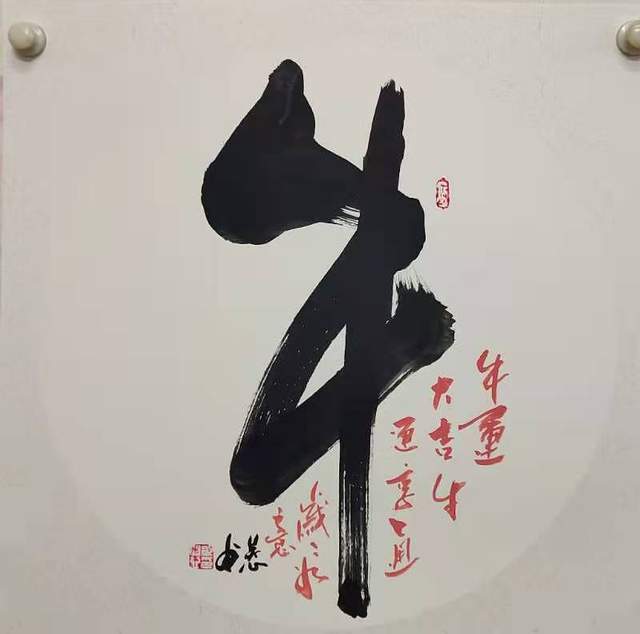 牛
牛運
大吉牛
運亨通
歲々如
意
书